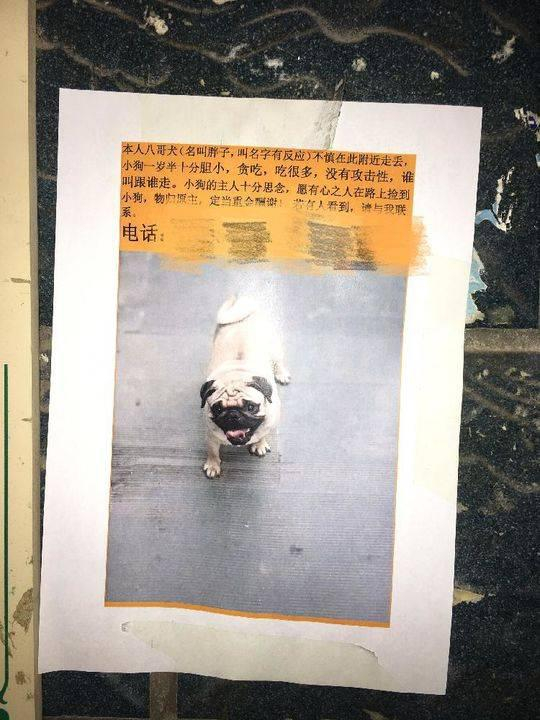 本人八哥犬(名叫胖子,叫名字有反应)不慎在此附近走丢,
小狗一岁半十分胆小,贪吃,吃很多,没有攻击性,谁
叫跟谁走。小狗的主人十分思念,愿有心之人在路上捡到
小狗,物归原主,定当重金酬谢!若有人看到,请与我联
系。
电话